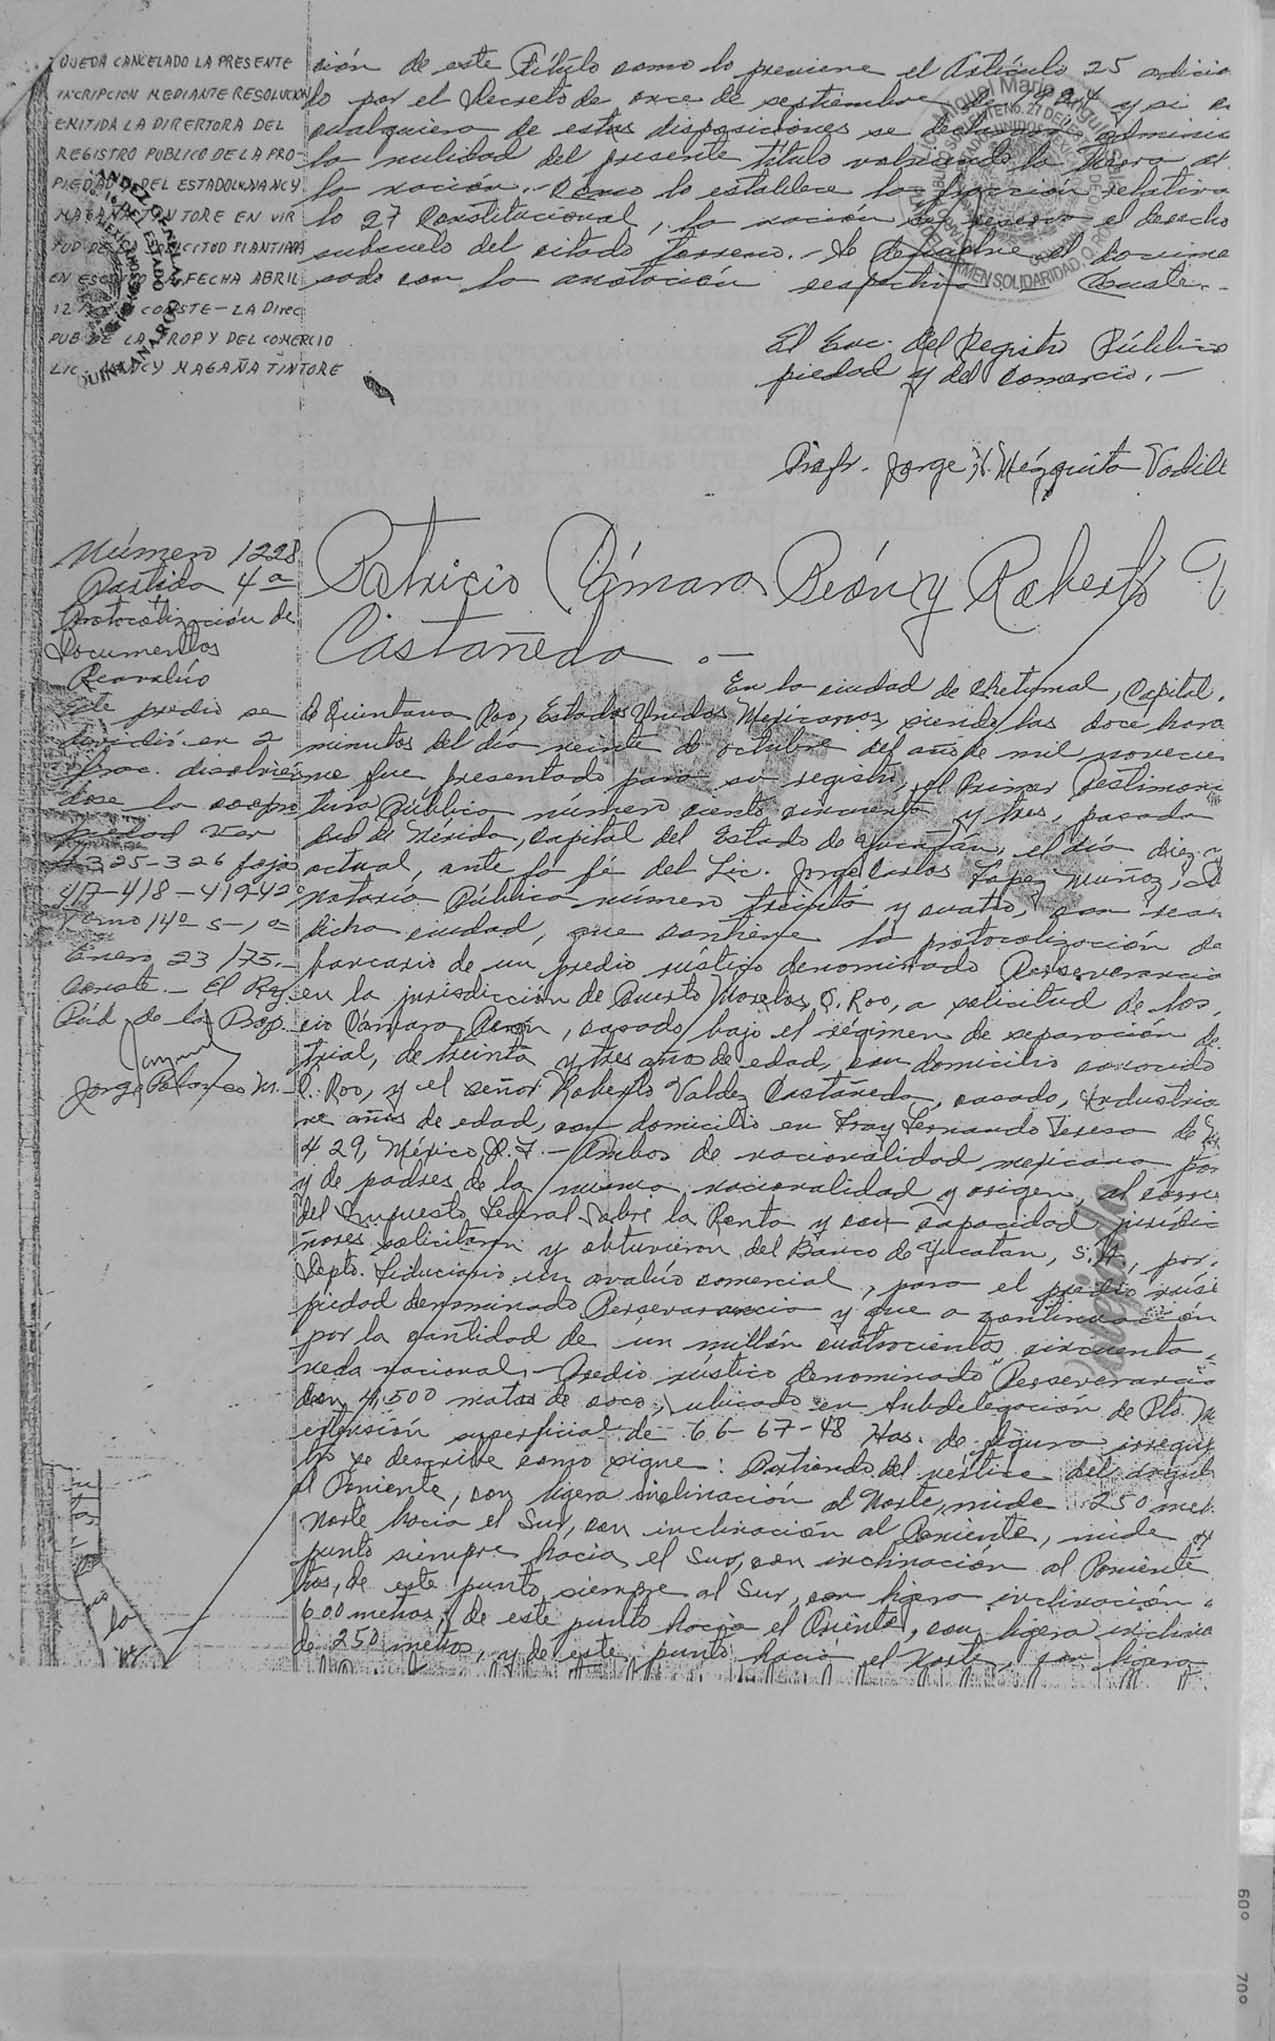 QUEDA CANCELADO LA PRESENTE
INCRIPCION MEDIANTE RESOLUCION
EMITIDA LA DIRERTORA DEL
REGISTRO PUBLICO DE LA PRO-
PIEDAD DEL ESTADO NANCY
MAGAÑA TINTORE EN VIR
SOLICITUD PLANTIADA
EN FECHA ABRIL
12 CONSTE - LA Direc
PUB DE LA PROP Y DEL COMERCIO
LIC. NANCY MAGAÑA TINTORE
ción de este Título como lo previene el Artículo 25 adicio
lo por el Decreto de once de septiembre de y si
cualquiera de estas disposiciones se
la nulidad del presente título volviendo la
la nación.- Como lo establece la fracción relativa
lo 27 Constitucional, la nación se reserva el derecho
subsuelo del citado terreno.- Se devuelve el
sado con la anotación respectiva Conste.-
El Enc. del Registro Público
piedad y del Comercio.-
Profr. Jorge H. Mézquita Vadill
SOLIDARIDAD, Q. ROO
Número 1228
Partida 4a
Protocolización de
Documentos
Reavalúo
Este predio se
dividió en 2
frac. disolvién
dose la copro
piedad Ver
# 325-326 foja
417-418-419-42
Tomo 14º S-1a
Enero 23/75.-
Conste.- El Reg.
Púb de la Prop.
Jorge Polanco M.
Patricio Cámara Peón y Roberto V
Castañeda.-
En la ciudad de Chetumal, Capital
de Quintana Roo, Estados Unidos Mexicanos, siendo las doce hora
minutos del día veinte de octubre del año de mil novecie
ve fue presentado para su registro, el Primer Testimoni
tura Pública número ciento cincuenta y tres, pasada
dad de Mérida, Capital del Estado de Yucatán, el día diez y
actual, ante la fé del Lic. Jorge Carlos López Muñoz,
notario Público número treinta y cuatro, con
dicha ciudad, que contiene la protocolización de
bancario de un predio rústico denominado Perseverancia
en la jurisdicción de Puerto Morelos, Q. Roo, a solicitud de los
cio Cámara Peón, casado bajo el régimen de separación de
trial, de treinta y tres años de edad, con domicilio conocido
Q. Roo, y el señor Roberto Valdez Castañeda, casado, Industria
ve años de edad, con domicilio en Fray Servando Teresa de
# 29, México, D.F.- Ambos de nacionalidad mexicana por
y de padres de la misma nacionalidad y origen, al corri
del Impuesto Federal Sobre la Renta y con capacidad jurídic
ñores solicitaron y obtuvieron del Banco de Yucatan, S.A., por
Depto. Fiduciario un avalúo comercial, para el predio rúsi
piedad denominado Perseverancia y que a continuación
por la cantidad de un millón cuatrocientos cincuenta
neda nacional.- Predio rústico denominado "Perseverancia
con 4,500 matas de coco, ubicado en Subdelegación de Pto. M
extensión superficial de 66-67-48 Has. de figura irregu
to se describe como sigue: Partiendo del vértice del ángul
al Poniente, con ligera inclinación al Norte, mide 250 met
Norte hacia el Sur, con inclinación al Poniente, mide
punto siempre hacia el Sur, con inclinación al Poniente
tros, de este punto, siempre al Sur, con ligera inclinación
600 metros; de este punto hacia el Oriente, con ligera inclina
de 250 metros, y de este punto hacia el Norte, con ligera
Cotejado
60º
70º